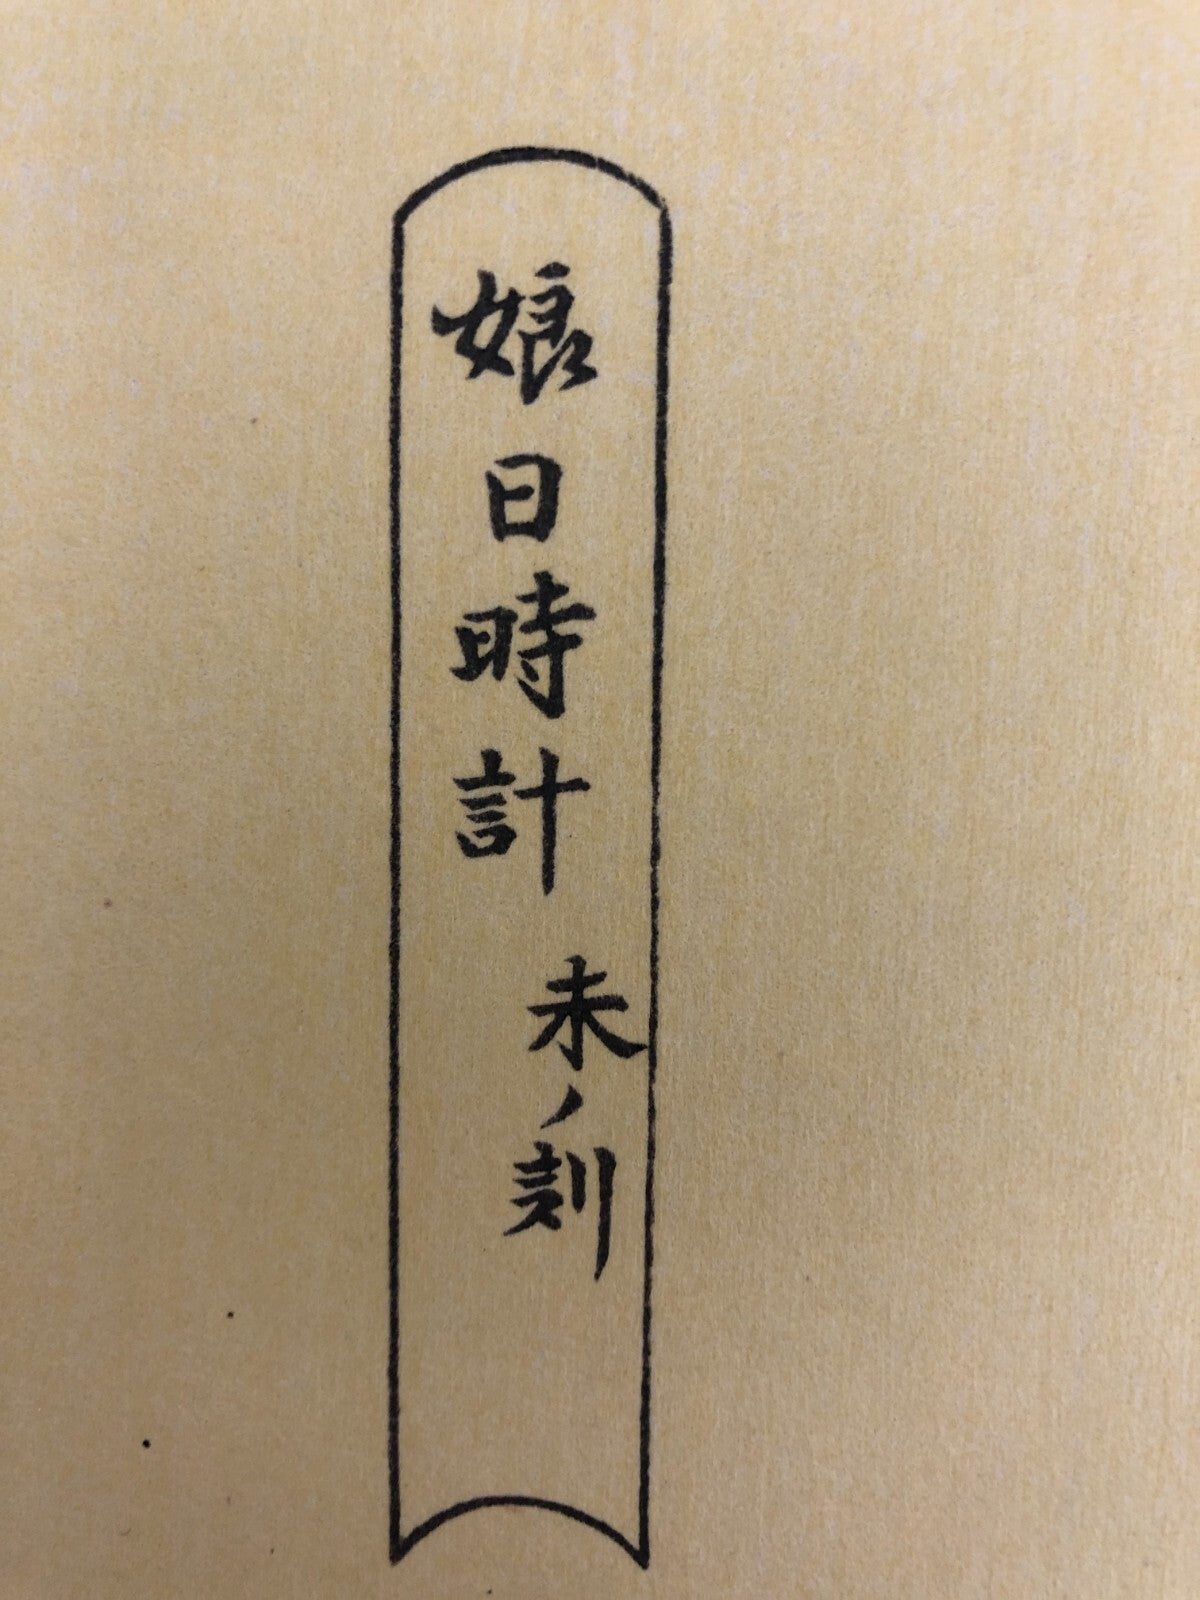 娘日時計 未ノ刻